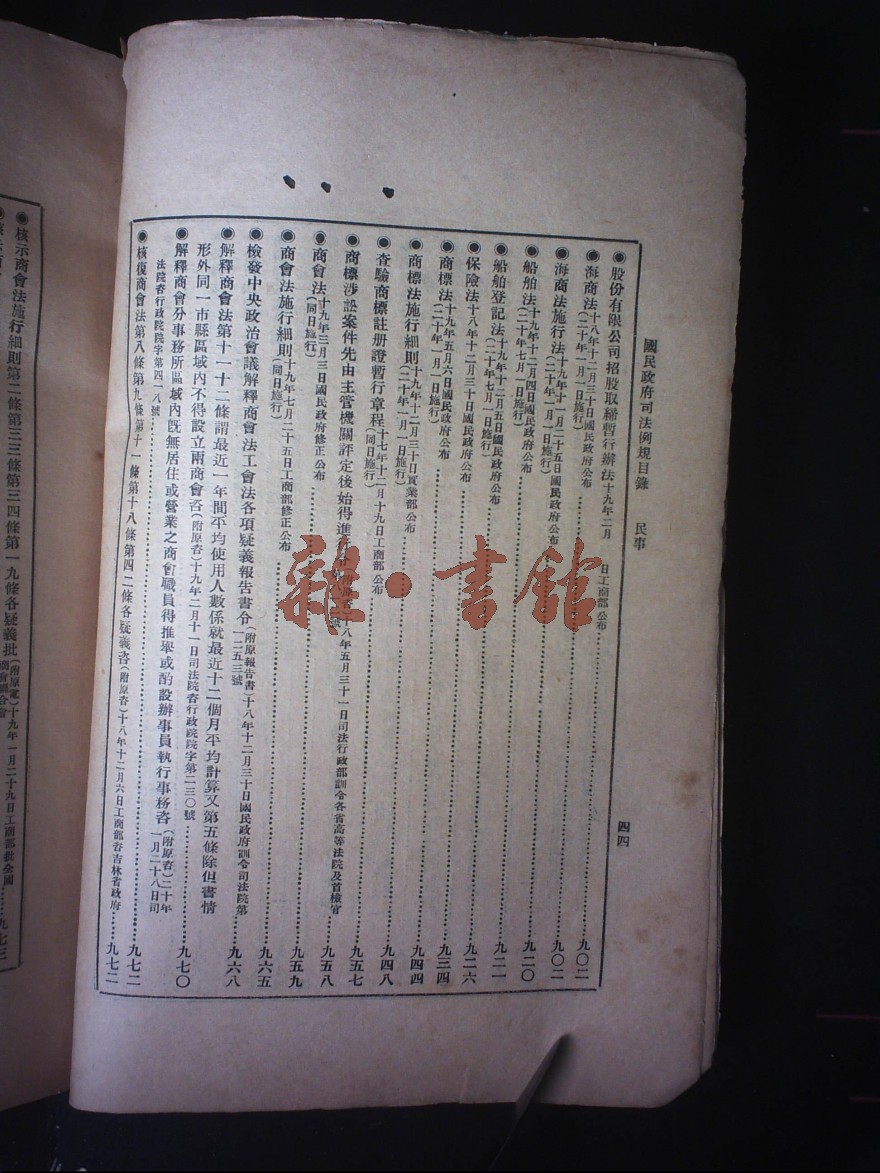 國民政府司法例規目錄 民事 四四
◉股份有限公司招股取締暫行辦法十九年二月 日工商部公布……九〇二
◉海商法十八年十二月三十日國民政府公布(二十年一月一日施行)……九〇二
◉海商法施行法十九年十一月二十五日國民政府公布(二十年一月一日施行)……九〇二
◉船舶法十九年十二月四日國民政府公布(二十年七月一日施行)……九二〇
◉船舶登記法十九年十二月五日國民政府公布(二十年七月一日施行)……九二一
◉保險法十八年十二月三十日國民政府公布……九二六
◉商標法十九年五月六日國民政府公布(二十年一月一日施行)……九三四
◉商標法施行細則十九年十二月三十日實業部公布(二十年一月一日施行)……九四四
◉查驗商標註册證暫行章程十七年十二月十九日工商部公布(同日施行)……九四八
◉商標涉訟案件先由主管機關評定後始得進行 十八年五月三十一日司法行政部訓令各省高等法院及首檢官……九五七
◉商會法十九年三月三日國民政府修正公布(同日施行)……九五八
◉商會法施行細則十九年七月二十五日工商部修正公布(同日施行)……九五九
◉檢發中央政治會議解釋商會法工會法各項疑義報告書令(附原報告書)十八年十二月三十日國民政府訓令司法院第一二五三號……九六五
◉解釋商會法第十一十二條謂最近一年間平均使用人數係就最近十二個月平均計算又第五條除但書情
形外同一市縣區域內不得設立兩商會咨(附原咨)十九年二月十一日司法院咨行政院院字第二三〇號……九六八
◉解釋商會分事務所區域內旣無居住或營業之商會職員得推舉或酌設辦事員執行事務咨(附原咨)二十年一月二十八日司
法院咨行政院院字第四一八號……九七〇
◉核復商會法第八條第九條第十一條第十八條第四二條各疑義咨(附原咨)十八年十二月六日工商部咨吉林省政府……九七二
◉核示商會法施行細則第二條第三三條第三四條第一九條各疑義批(附原電)十九年一月二十九日工商部批全國商會聯合會……九七三
雜·書館